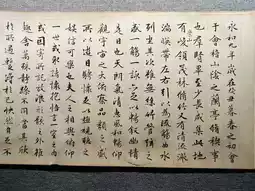 永和九年歲在癸丑暮春之初會
于會稽山陰之蘭亭脩稧事
也群賢畢至少長咸集此地
有崇山峻領茂林脩竹又有清流激
湍暎帶左右引以為流觴曲水
列坐其次雖無絲竹管弦之
盛一觴一詠亦足以暢敘幽情
是日也天朗氣清惠風和暢仰
觀宇宙之大俯察品類之盛
所以遊目騁懷足以極視聽之
娛信可樂也夫人之相與俯仰
一世或取諸懷抱悟言一室之內
或因寄所託放浪形骸之外雖
趣舍萬殊靜躁不同當其欣
於所遇暫得於己快然自足不